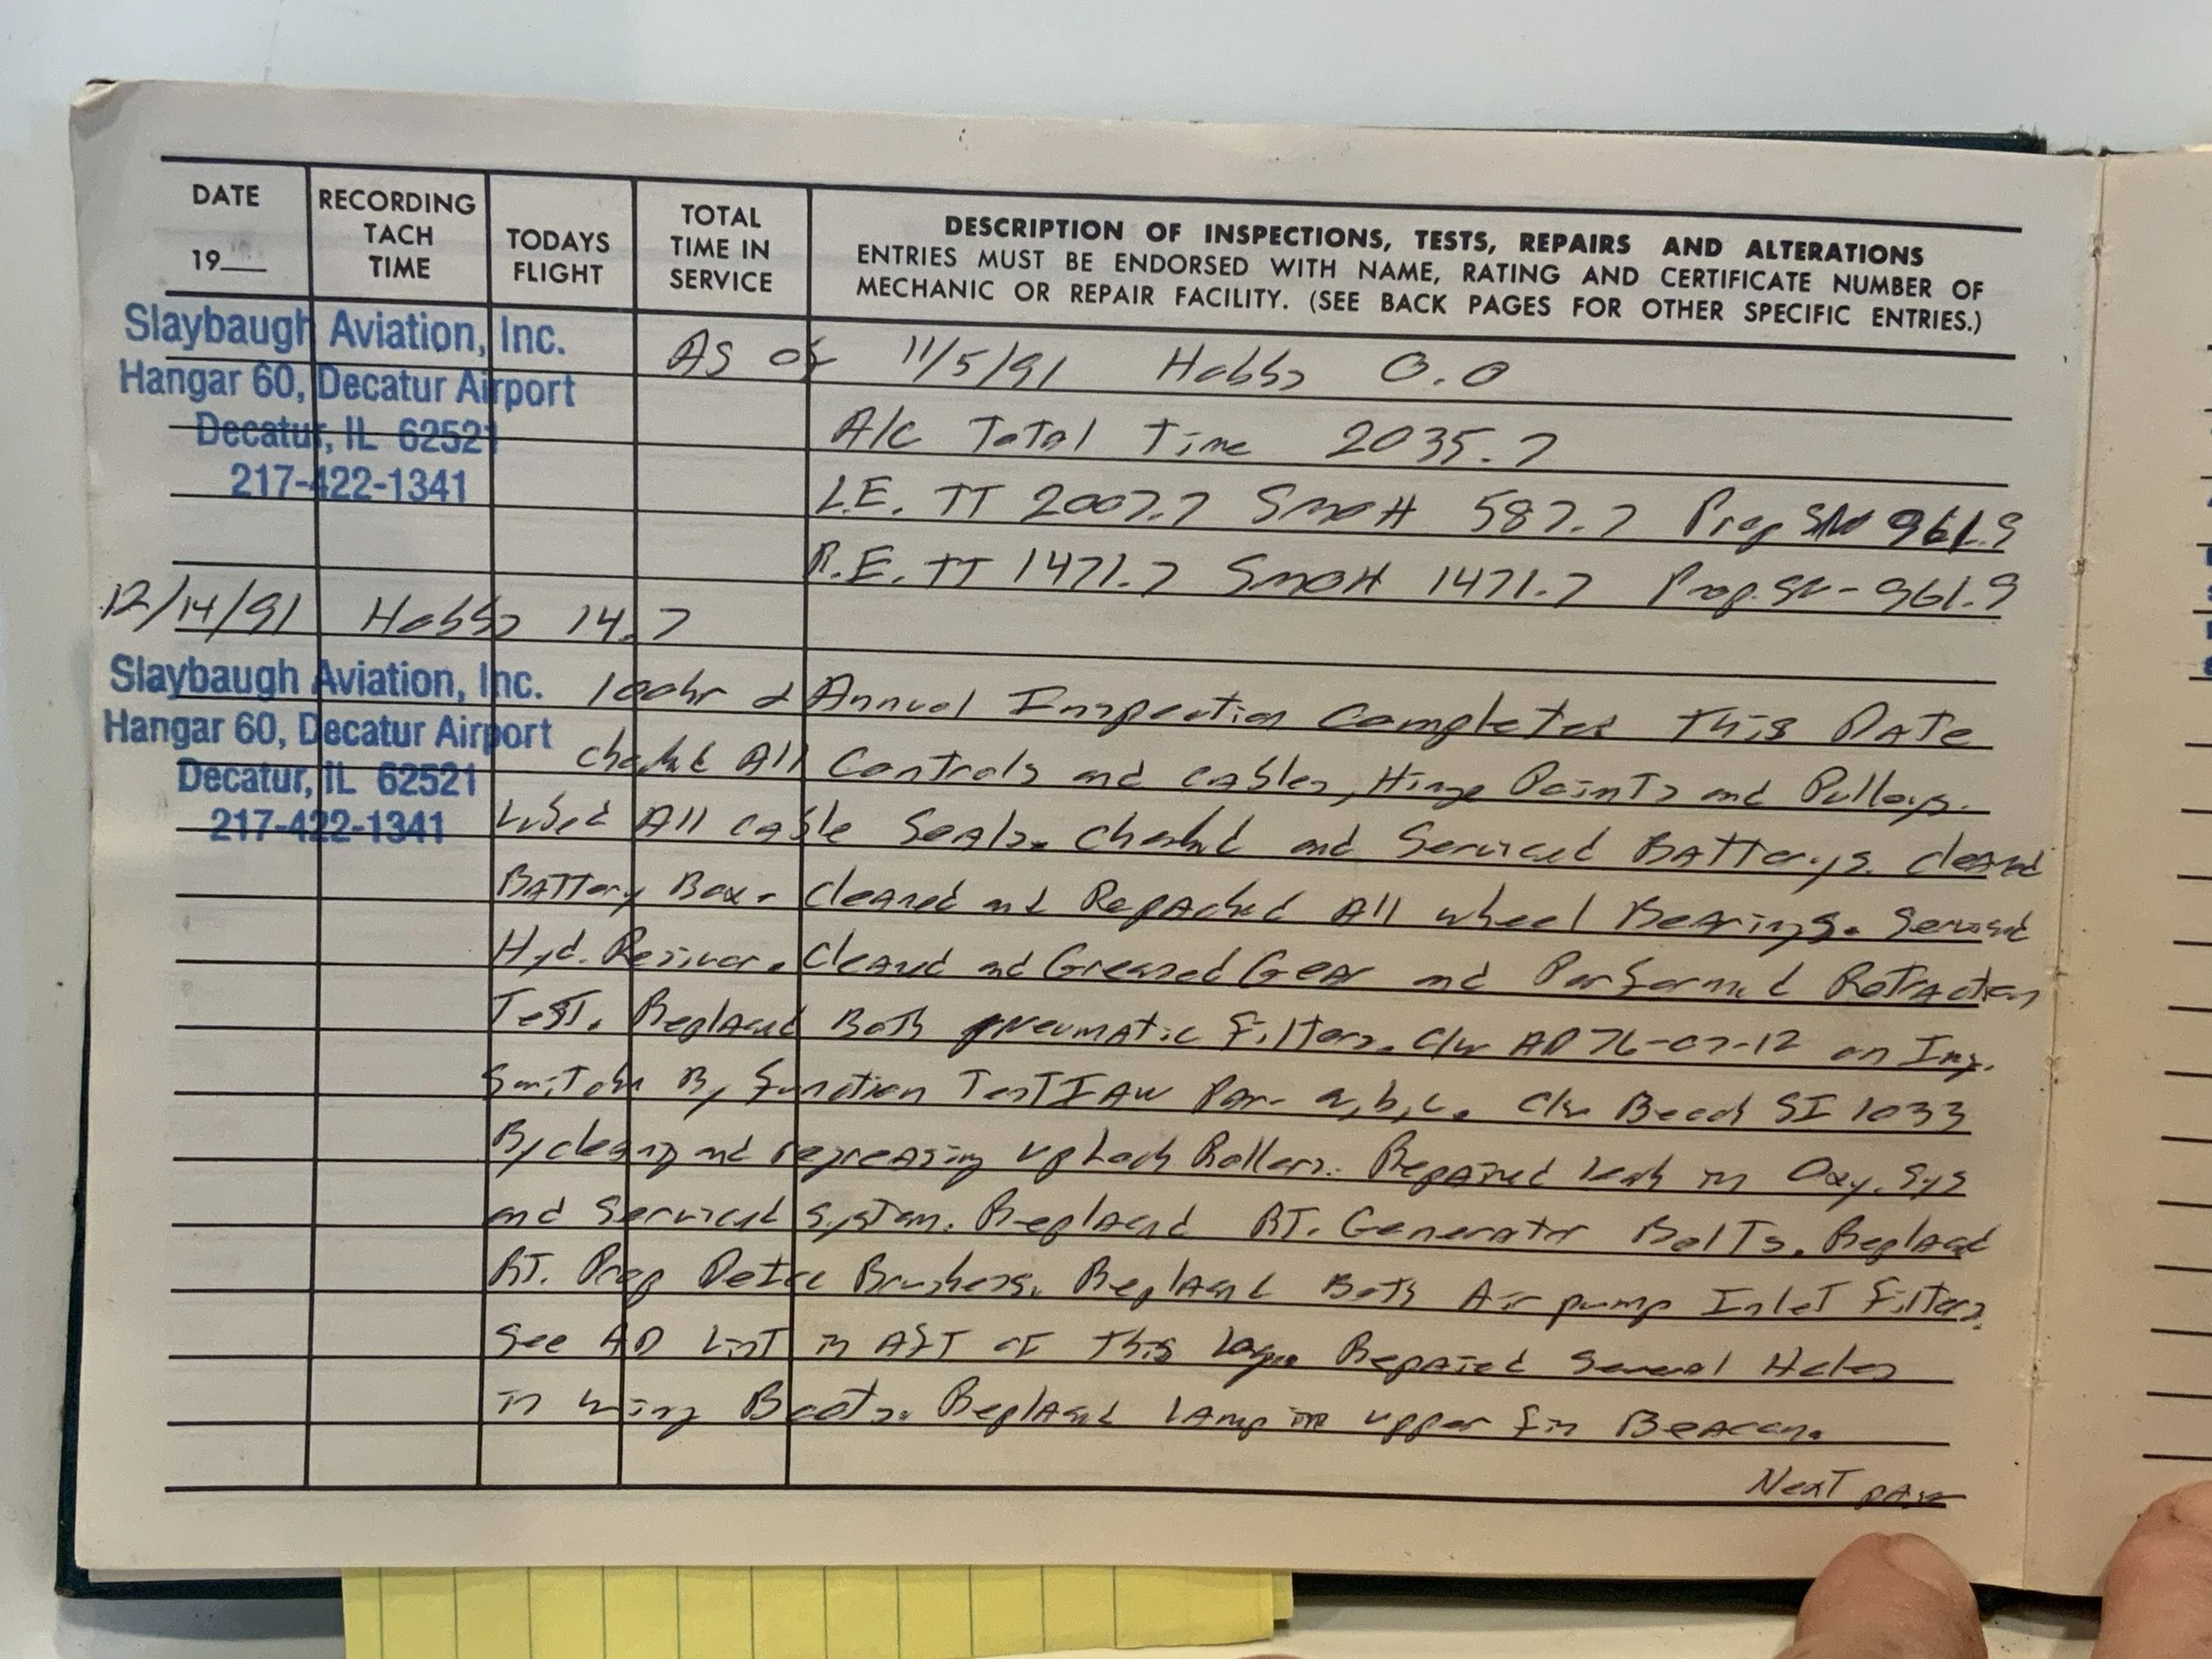 DATE
19___
RECORDING TACH TIME
TODAYS FLIGHT
TOTAL TIME IN SERVICE
DESCRIPTION OF INSPECTIONS, TESTS, REPAIRS AND ALTERATIONS
ENTRIES MUST BE ENDORSED WITH NAME, RATING AND CERTIFICATE NUMBER OF
MECHANIC OR REPAIR FACILITY. (SEE BACK PAGES FOR OTHER SPECIFIC ENTRIES.)
Slaybaugh Aviation, Inc.
Hangar 60, Decatur Airport
Decatur, IL 62521
217-422-1341
As of 11/5/91 Hobbs 0.0
A/C Total Time 2035.7
L.E. TT 2007.7 SMOH 587.7 Prop SN 961.9
R.E. TT 1471.7 SMOH 1471.7 Prop. SN - 961.9
12/14/91 Hobbs 14.7
Slaybaugh Aviation, Inc.
Hangar 60, Decatur Airport
Decatur, IL 62521
217-422-1341
100hr & Annual Inspection Completed This Date
Checked All Controls and Cables, Hinge Points and Pulleys.
Lubed All Cable Seals. Checked and Serviced Batterys. Cleaned
Battery Box. Cleaned and Repacked All Wheel Bearings. Serviced
Hyd. Resivor. Cleaned and Greased Gear and Performed Retraction
Test. Replaced Both Pneumatic Filters. C/W AD 76-07-12 on Ing.
Switch By Function Test IAW Par- a,b,c. C/W Beech SI 1033
By cleaning and regreasing upLock Rollers. Repaired leak in Oxy. Sys
and Serviced System. Replaced RT. Generator Bolts. Replaced
RT. Prop Deice Brushes. Replaced Both Air pump Inlet Filters.
See AD List in Aft of This Log. Repaired Several Holes
in Wing Boots. Replaced Lamp in upper fin Beacon.
Next page